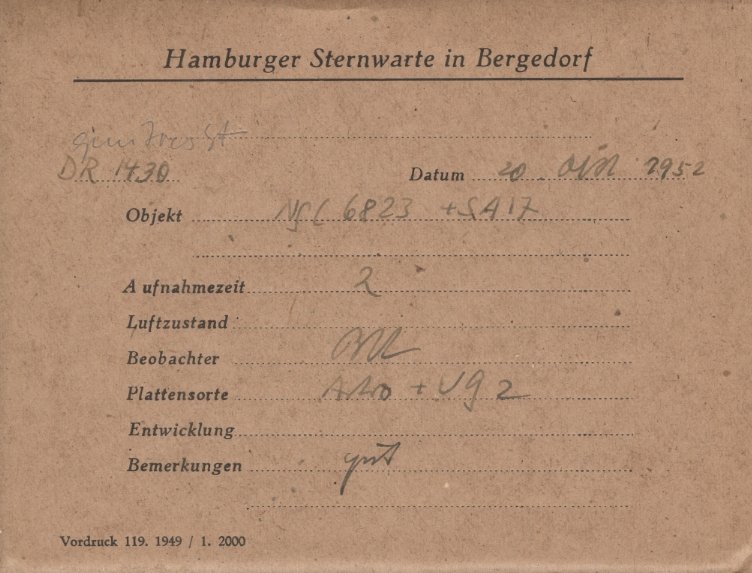 Hamburger Sternwarte in Bergedorf
DR 1430 Datum 20. Okt 1952
Objekt NGC 6823 + SA 17
Aufnahmezeit 2
Luftzustand
Beobachter
Plattensorte Astro + UG 2
Entwicklung
Bemerkungen gut
Vordruck 119. 1949 / 1. 2000